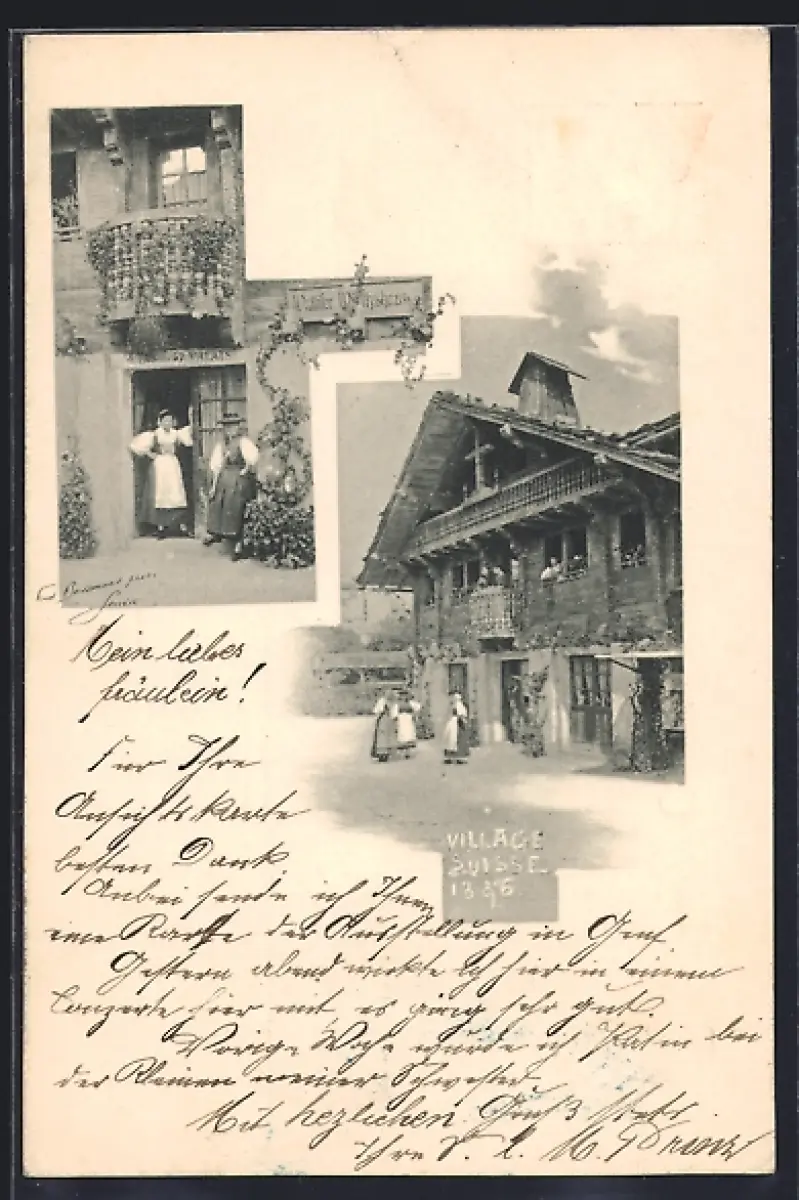 VILLAGE
SUISSE.
1896
Mein liebes
Fräulein!
Für Ihre
Ansichtskarte
besten Dank.
Anbei sende ich Ihnen
eine Karte der Ausstellung in Genf.
Gestern abend wirkte ich hier in einem
Conzerte hier mit, es ging sehr gut.
Vorige Woche wurde ich Patin bei
der Kleinen meiner Schwester.
Mit herzlichen Gruß stets
Ihre